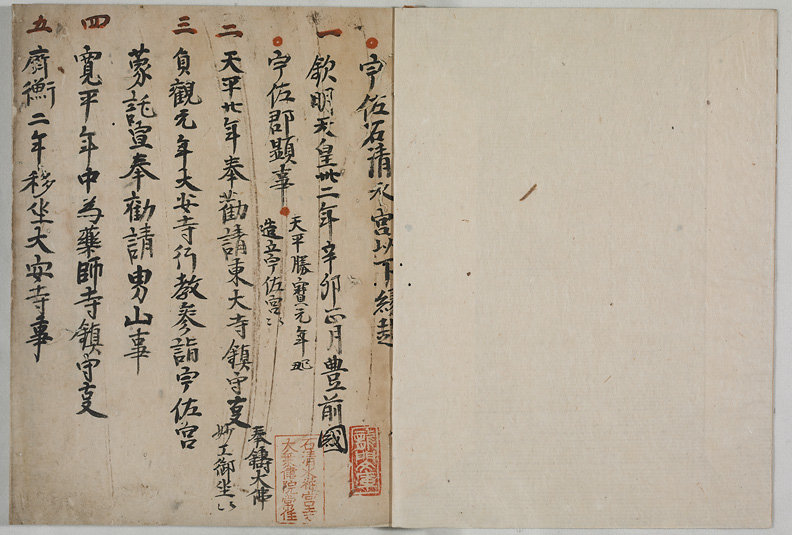 宇佐石清水宮以下縁起
一
欽明天皇卅二年辛卯正月豊前國
宇佐郡顕事
天平勝寶元年
造立宇佐宮
二
天平廿年奉勸請東大寺鎮守事
奉鑄大佛
御坐
三
貞觀元年大安寺行教参詣宇佐宮
蒙託宣奉勸請男山事
四
寛平年中為藥師寺鎮守事
五
齊衡二年移坐大安寺事